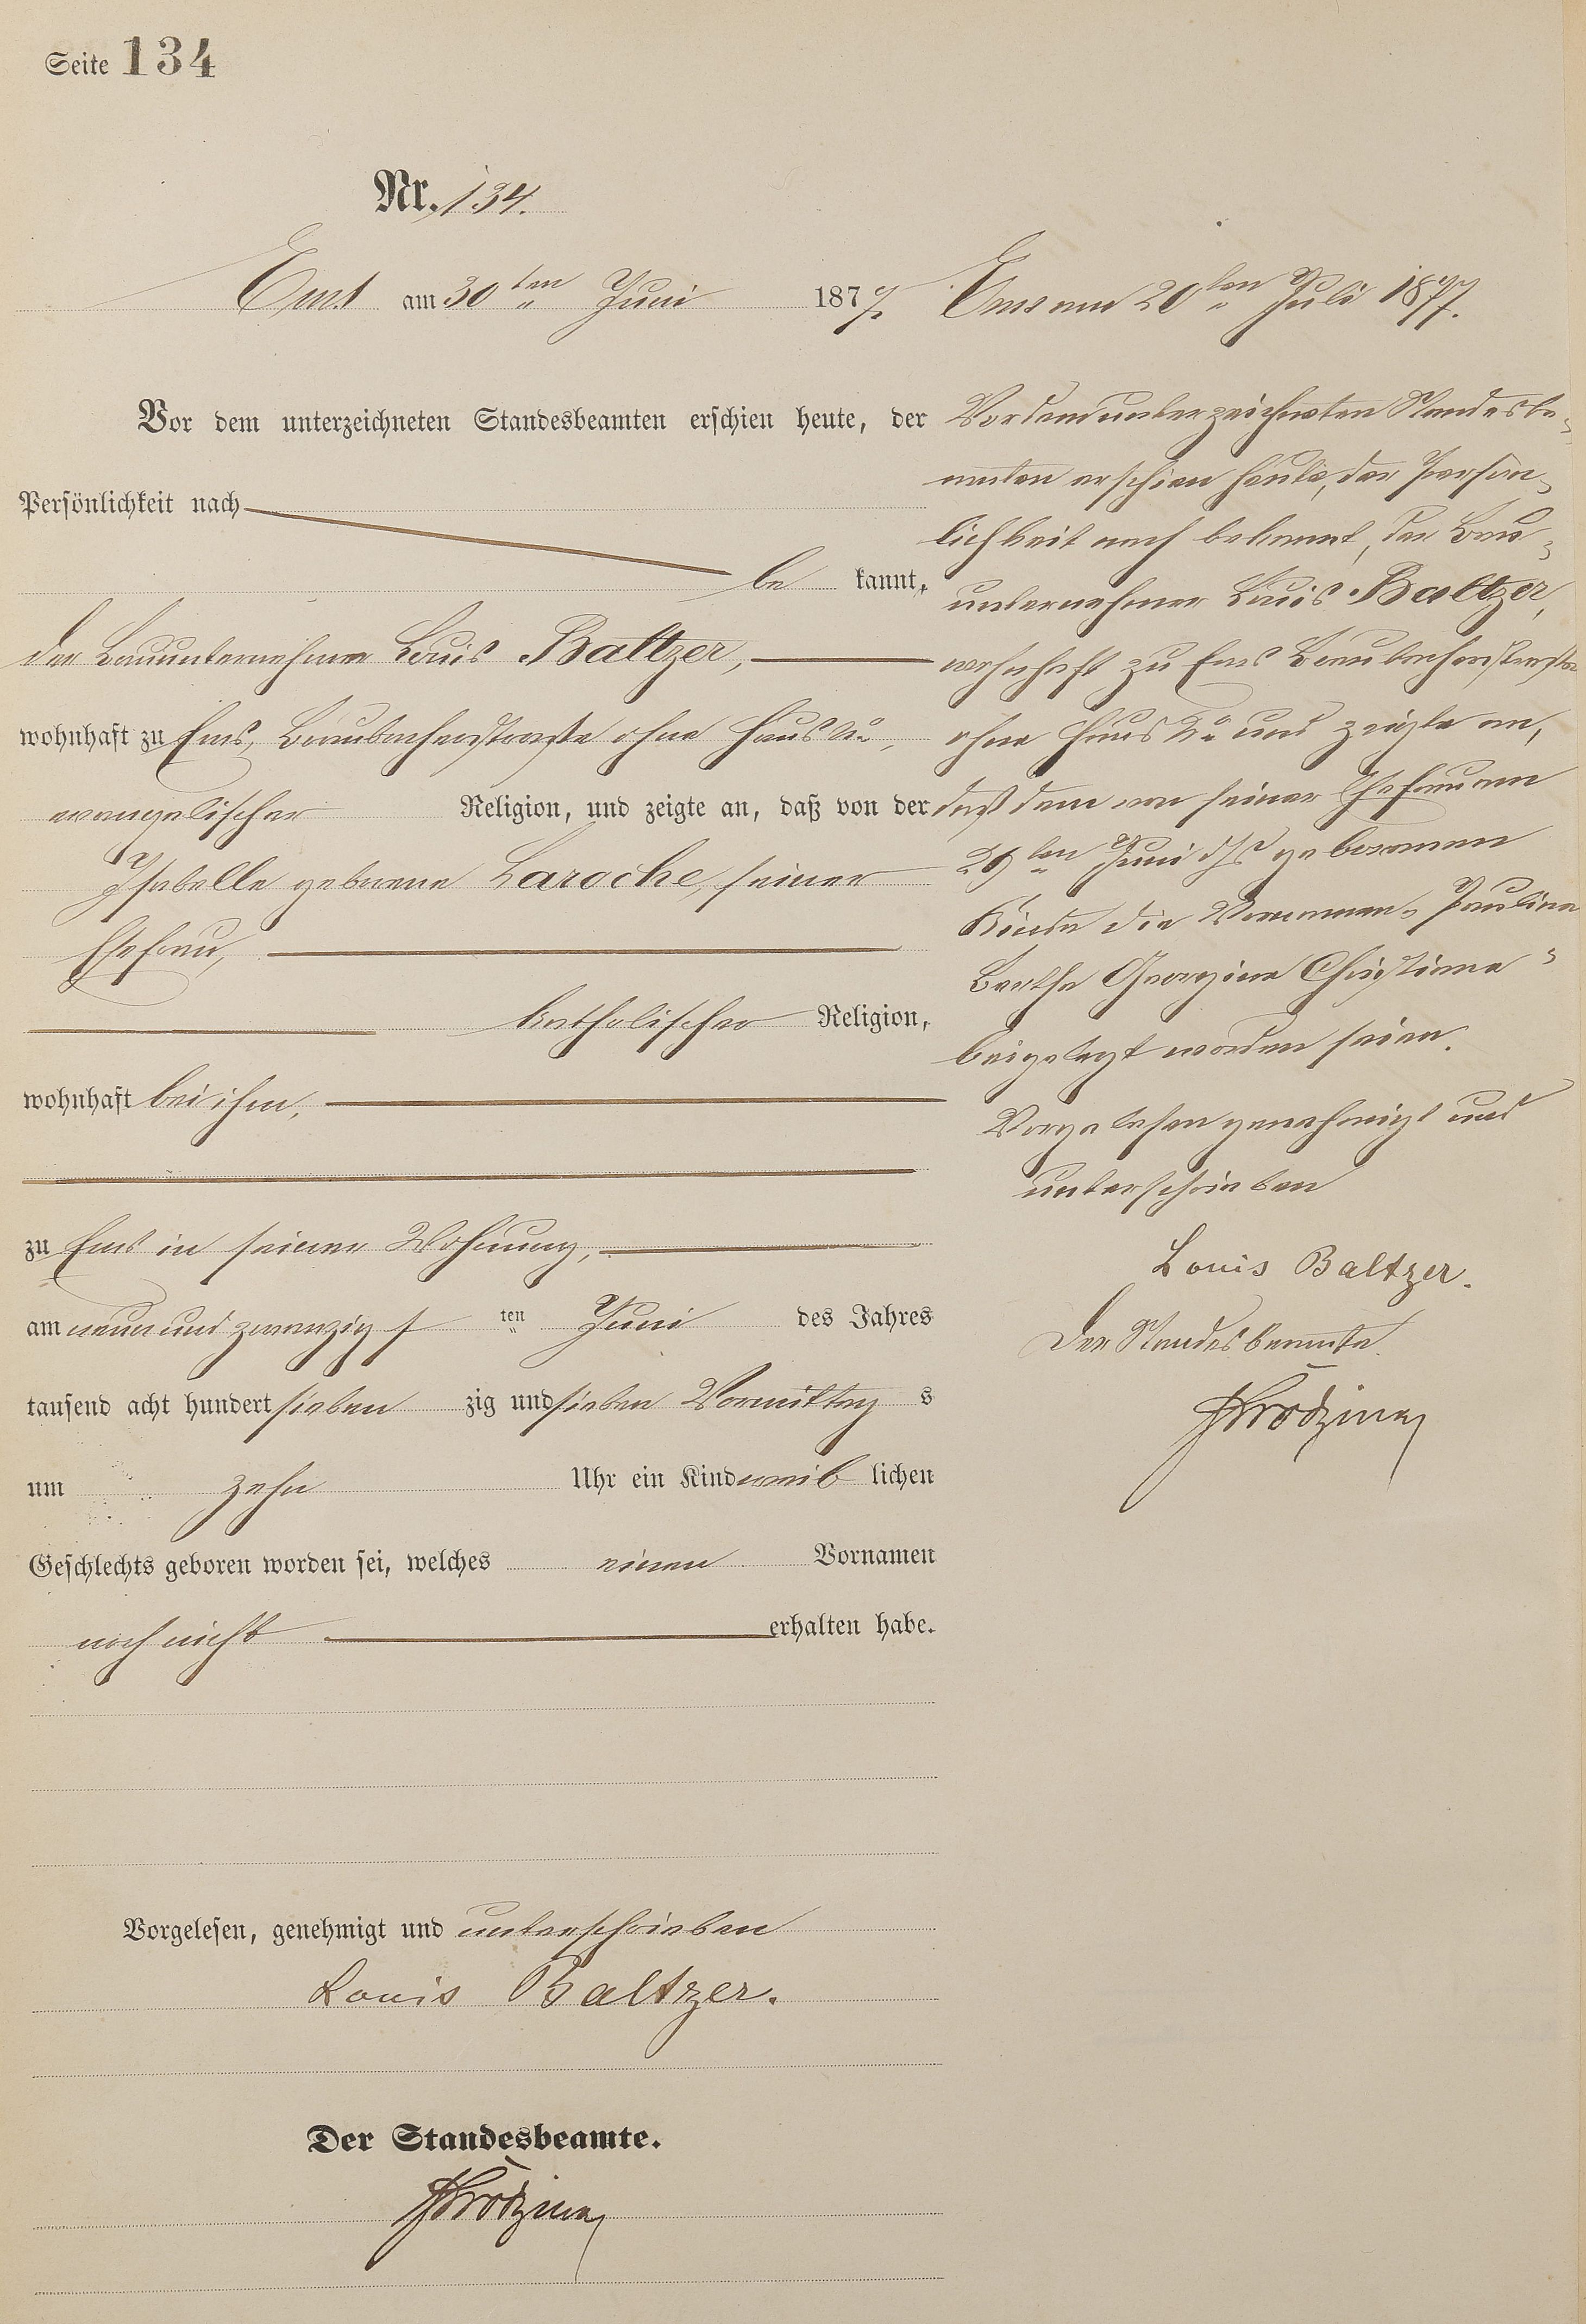 Seite 134
Nr. 134.
Ems am 30ten Juni 1877.
Vor dem unterzeichneten Standesbeamten erschien heute, der
Persönlichkeit nach
be kannt,
der Bauunternehmer Louis Baltzer,
wohnhaft zu Ems, Braubacherstraße ohne Haus No,
evangelischer Religion, und zeigte an, daß von der
Isabelle geborene Laroche, seiner
Ehefrau,
katholischer Religion,
wohnhaft bei ihm,
zu Ems in seiner Wohnung,
am neun und zwanzigsten Juni des Jahres
tausend acht hundert sieben zig und sieben Vormittag s
um zehn Uhr ein Kind weib lichen
Geschlechts geboren worden sei, welches einen Vornamen
noch nicht erhalten habe.
Vorgelesen, genehmigt und unterschrieben
Louis Baltzer.
Der Standesbeamte.
Ems am 20ten Juli 1877.
Vor dem unterzeichneten Standesbe-
amten erschien heute, der Persön-
lichkeit nach bekannt, der Bau-
unternehmer Louis Baltzer,
wohnhaft zu Ems Braubacherstraße
ohne Haus No und zeigte an,
daß dem von seiner Ehefrau am
29ten Juni geborenen
Kinde die Vornamen Pauline
Bertha Georgine Christiane
beigelegt worden seien.
Vorgelesen genehmigt und
unterschrieben
Louis Baltzer.
Der Standesbeamte.